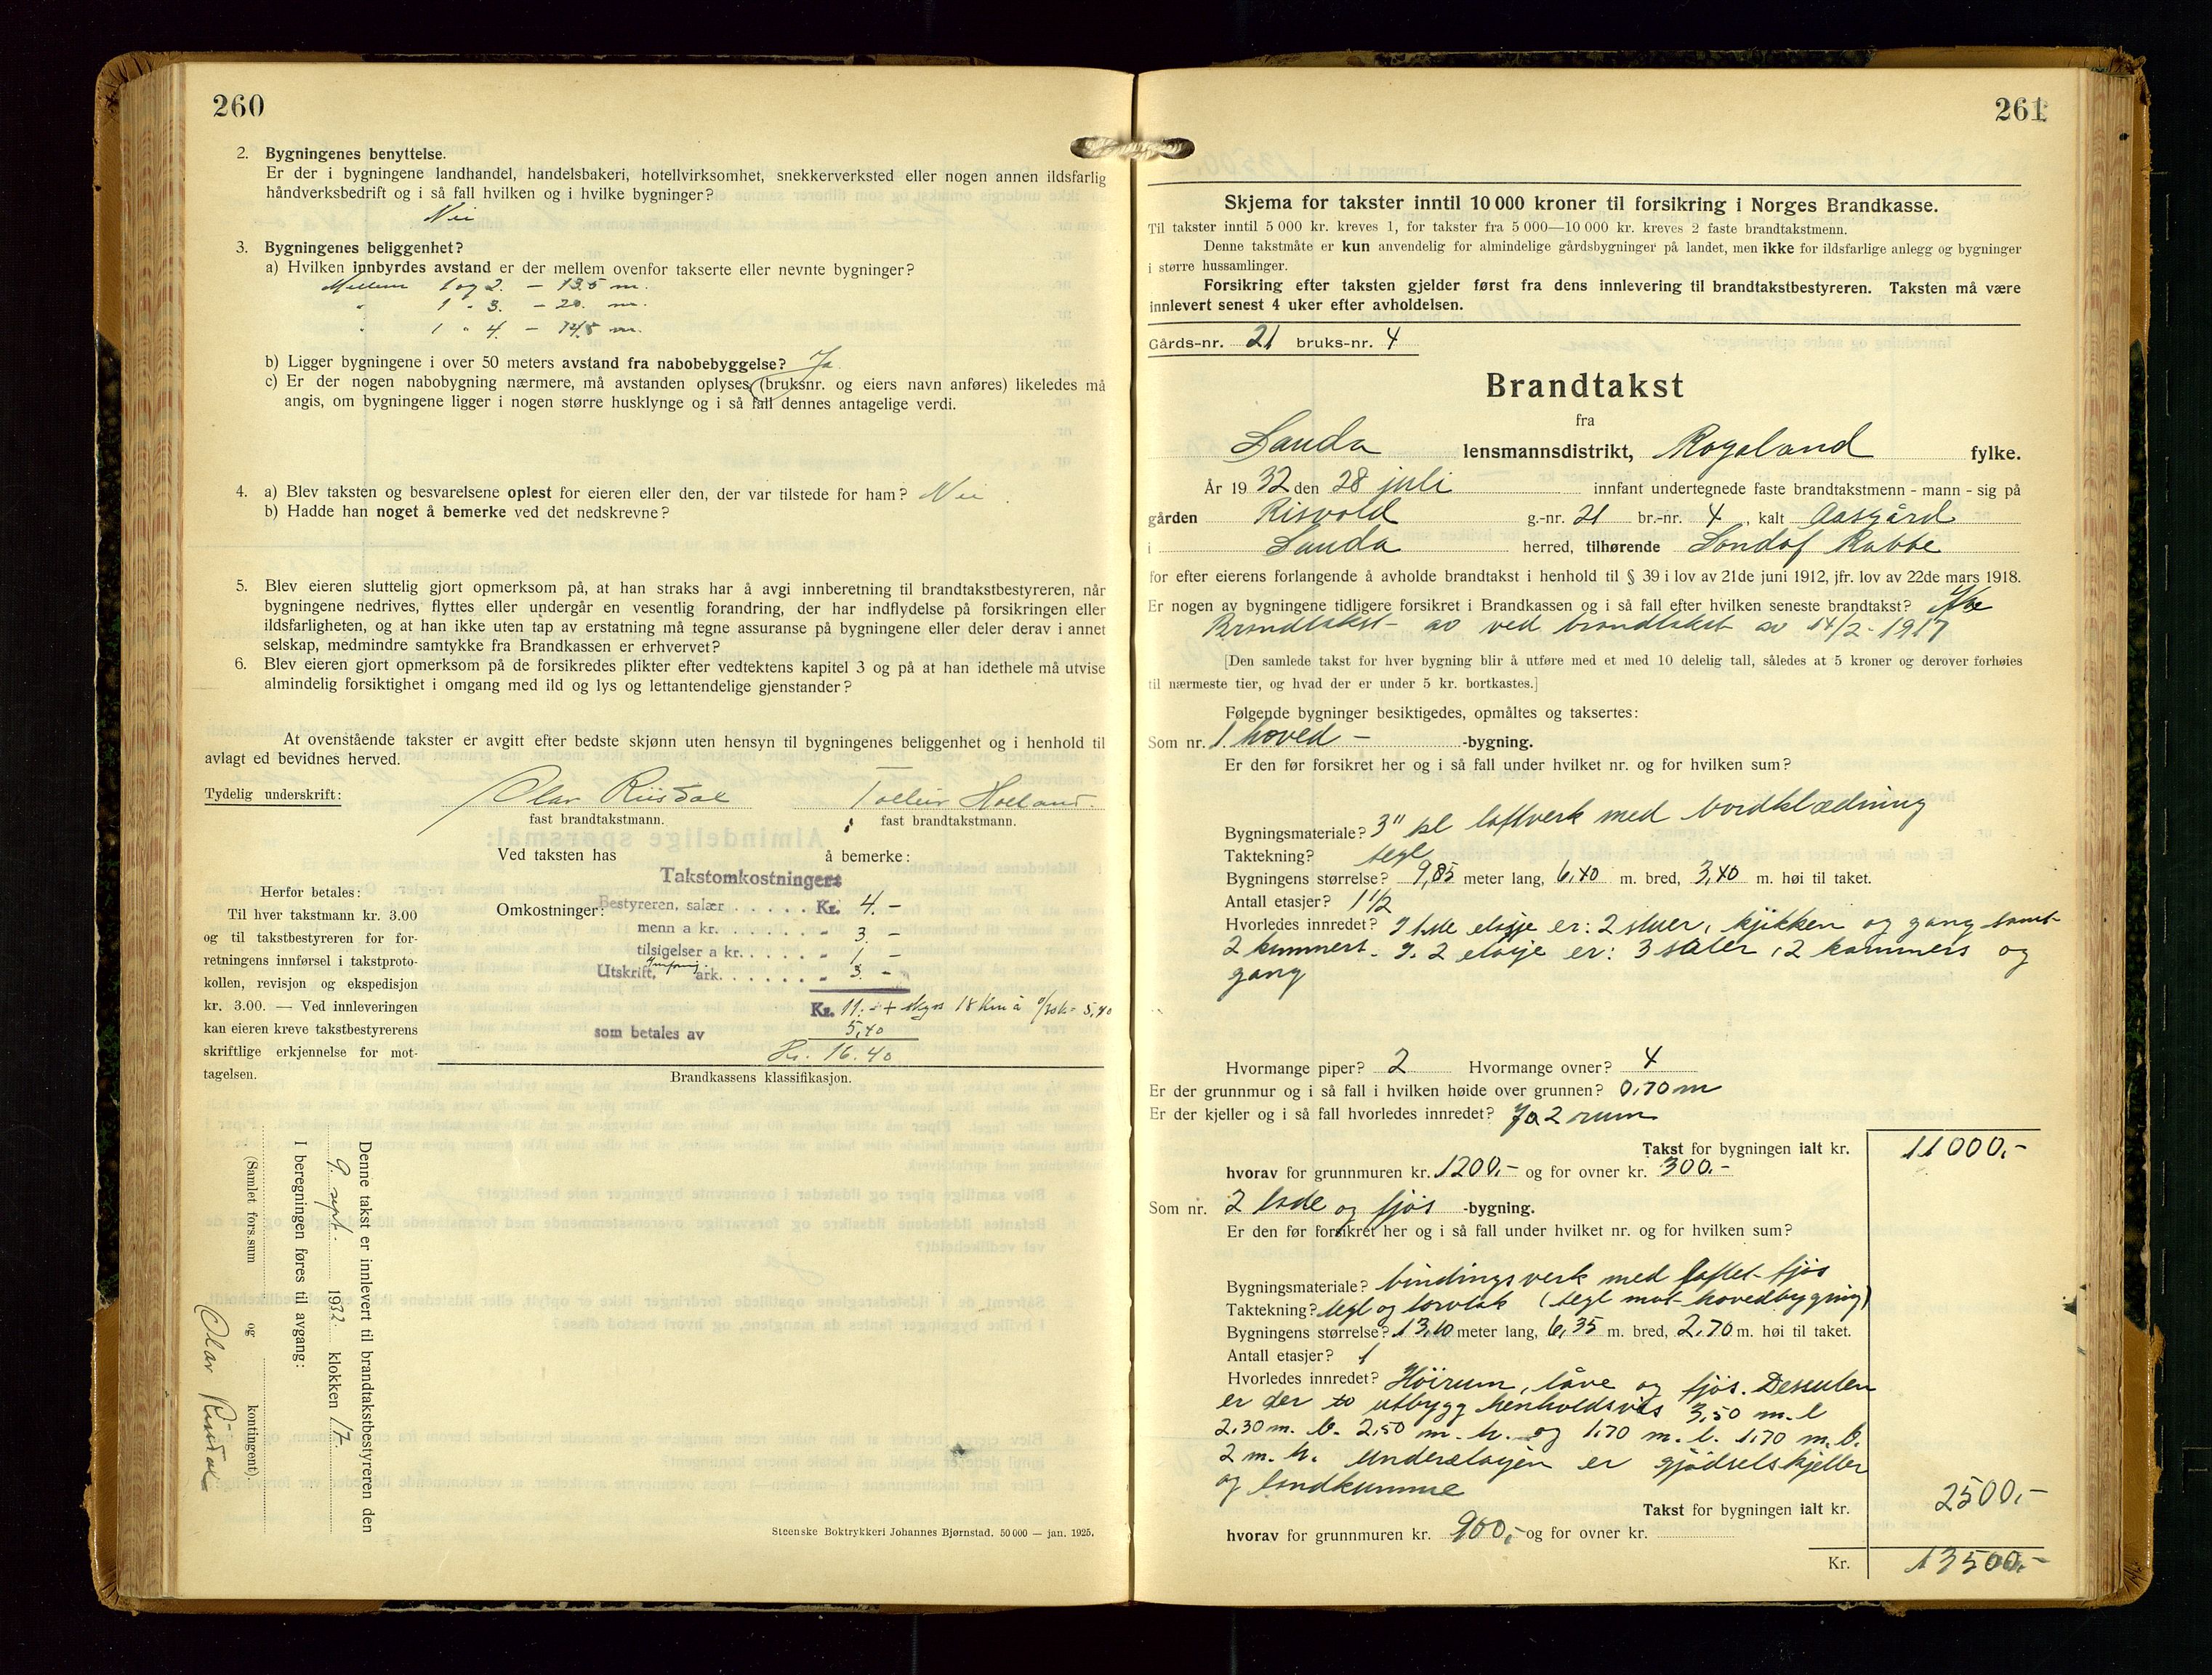 260
2. Bygningenes benyttelse.
Er der i bygningene landhandel, handelsbakeri, hotellvirksomhet, snekkerverksted eller nogen annen ildsfarlig
håndverksbedrift og i så fall hvilken og i hvilke bygninger?
Nei
3. Bygningenes beliggenhet?
a) Hvilken innbyrdes avstand er der mellem ovenfor takserte eller nevnte bygninger?
Mellem 1 og 2. — 13.5 m.
" 1 " 3. — 20. m.
" 1 " 4. — m.
b) Ligger bygningene i over 50 meters avstand fra nabobebyggelse? Ja
c) Er der nogen nabobygning nærmere, må avstanden oplyses (bruksnr. og eiers navn anføres) likeledes må
angis, om bygningene ligger i nogen større husklynge og i så fall dennes antagelige verdi.
4. a) Blev taksten og besvarelsene oplest for eieren eller den, der var tilstede for ham? Nei
b) Hadde han noget å bemerke ved det nedskrevne?
5. Blev eieren sluttelig gjort opmerksom på, at han straks har å avgi innberetning til brandtakstbestyreren, når
bygningene nedrives, flyttes eller undergår en vesentlig forandring, der har indflydelse på forsikringen eller
ildsfarligheten, og at han ikke uten tap av erstatning må tegne assuranse på bygningene eller deler derav i annet
selskap, medmindre samtykke fra Brandkassen er erhvervet?
6. Blev eieren gjort opmerksom på de forsikredes plikter efter vedtektens kapitel 3 og på at han idethele må utvise
almindelig forsiktighet i omgang med ild og lys og lettantendelige gjenstander?
At ovenstående takster er avgitt efter bedste skjønn uten hensyn til bygningenes beliggenhet og i henhold til
avlagt ed bevidnes herved.
Tydelig underskrift: Olav Riisdal Tolleiv Hoeland
fast brandtakstmann. fast brandtakstmann.
Ved taksten has å bemerke:
Takstomkostninger:
Omkostninger: Bestyreren, salær . . . . . Kr. 4. -
menn a kr. . . . . . - 3 -
tilsigelser a kr. . . . . - 1 -
Utskrift, ark. . . . . . - 3 -
Kr. 11.- + skyss 18 km à = 5,40
som betales av 5,40
Kr. 16.40
Brandkassens klassifikasjon.
Herfor betales:
Til hver takstmann kr. 3.00
og til takstbestyreren for for-
retningens innførsel i takstproto-
kollen, revisjon og ekspedisjon
kr. 3.00. — Ved innleveringen
kan eieren kreve takstbestyrerens
skriftlige erkjennelse for mot-
tagelsen.
Denne takst er innlevert til brandtakstbestyreren den
9. spt. 1932 klokken 17
I beregningen føres til avgang:
(Samlet fors.sum og kontingent).
Olav Riisdal
Steenske Boktrykkeri Johannes Bjørnstad. 50 000 — jan. 1925.
261
Skjema for takster inntil 10 000 kroner til forsikring i Norges Brandkasse.
Til takster inntil 5 000 kr. kreves 1, for takster fra 5 000—10 000 kr. kreves 2 faste brandtakstmenn.
Denne takstmåte er kun anvendelig for almindelige gårdsbygninger på landet, men ikke for ildsfarlige anlegg og bygninger
i større hussamlinger.
Forsikring efter taksten gjelder først fra dens innlevering til brandtakstbestyreren. Taksten må være
innlevert senest 4 uker efter avholdelsen.
Gårds-nr. 21 bruks-nr. 4
Brandtakst
fra
Sauda lensmannsdistrikt, Rogaland fylke.
År 1932 den 28 juli innfant undertegnede faste brandtakstmenn - mann - sig på
gården Risvold g.-nr. 21 br.-nr. 4, kalt Aasgård
i Sauda herred, tilhørende Rabbe
for efter eierens forlangende å avholde brandtakst i henhold til § 39 i lov av 21de juni 1912, jfr. lov av 22de mars 1918.
Er nogen av bygningene tidligere forsikret i Brandkassen og i så fall efter hvilken seneste brandtakst?
Brandtakst av ved brandtakst av 14/2-1917
[Den samlede takst for hver bygning blir å utføre med et med 10 delelig tall, således at 5 kroner og derover forhøies
til nærmeste tier, og hvad der er under 5 kr. bortkastes.]
Følgende bygninger besiktigedes, opmåltes og taksertes:
Som nr. 1. hoved - -bygning.
Er den før forsikret her og i så fall under hvilket nr. og for hvilken sum?
Bygningsmateriale? 3" pl laftverk med bordklædning
Taktekning? tegl
Bygningens størrelse? 9,85 meter lang, 6,40 m. bred, 3,40 m. høi til taket.
Antall etasjer? 1 1/2
Hvorledes innredet? I 1ste etasje er: 2 stuer, kjøkken og gang samt
2 kammers. I. 2 etasje er: 3 saler, 2 kammers og
gang
Hvormange piper? 2 Hvormange ovner? 4
Er der grunnmur og i så fall i hvilken høide over grunnen? 0,70 m
Er der kjeller og i så fall hvorledes innredet? Ja 2 rum
Takst for bygningen ialt kr. 11000,-
hvorav for grunnmuren kr. 1200,- og for ovner kr. 300.-
Som nr. 2 lade og fjøs -bygning.
Er den før forsikret her og i så fall under hvilket nr. og for hvilken sum?
Bygningsmateriale? bindingsverk med laftet fjøs
Taktekning? tegl og torvtak (tegl mot hovedbygning)
Bygningens størrelse? 13,10 meter lang, 6,35 m. bred, 2,70 m. høi til taket.
Antall etasjer? 1
Hvorledes innredet? Høirum, låve og fjøs. Dessuten
er der to utbygg henholdsvis 3,50 m. l
2,30 m. b. 2,50 m. h. og 1.70 m. l. 1.70 m. b.
2 m. h. Underetasjen er gjødselskjeller
og landkumme
Takst for bygningen ialt kr. 2500,-
hvorav for grunnmuren kr. 900,- og for ovner kr.
Kr. 13500,-